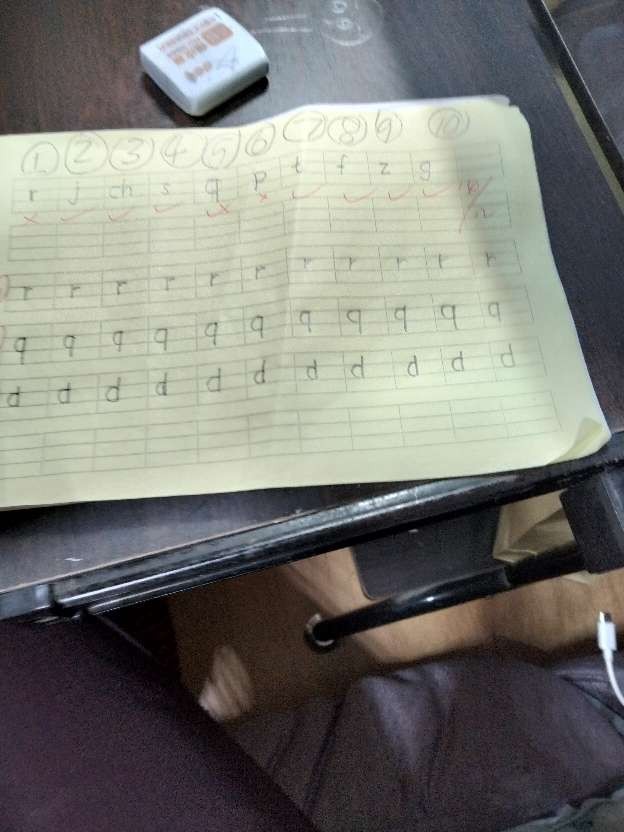 ① ② ③ ④ ⑤ ⑥ ⑦ ⑧ ⑨ ⑩
r j ch s q p t f z g
r r r r r r r r r r r
q q q q q q q q q q q
d d d d d d d d d d d